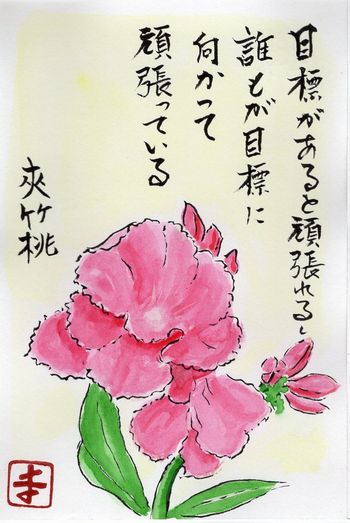 目標があると頑張れるし
誰もが目標に
向かって
頑張っている
夾竹桃